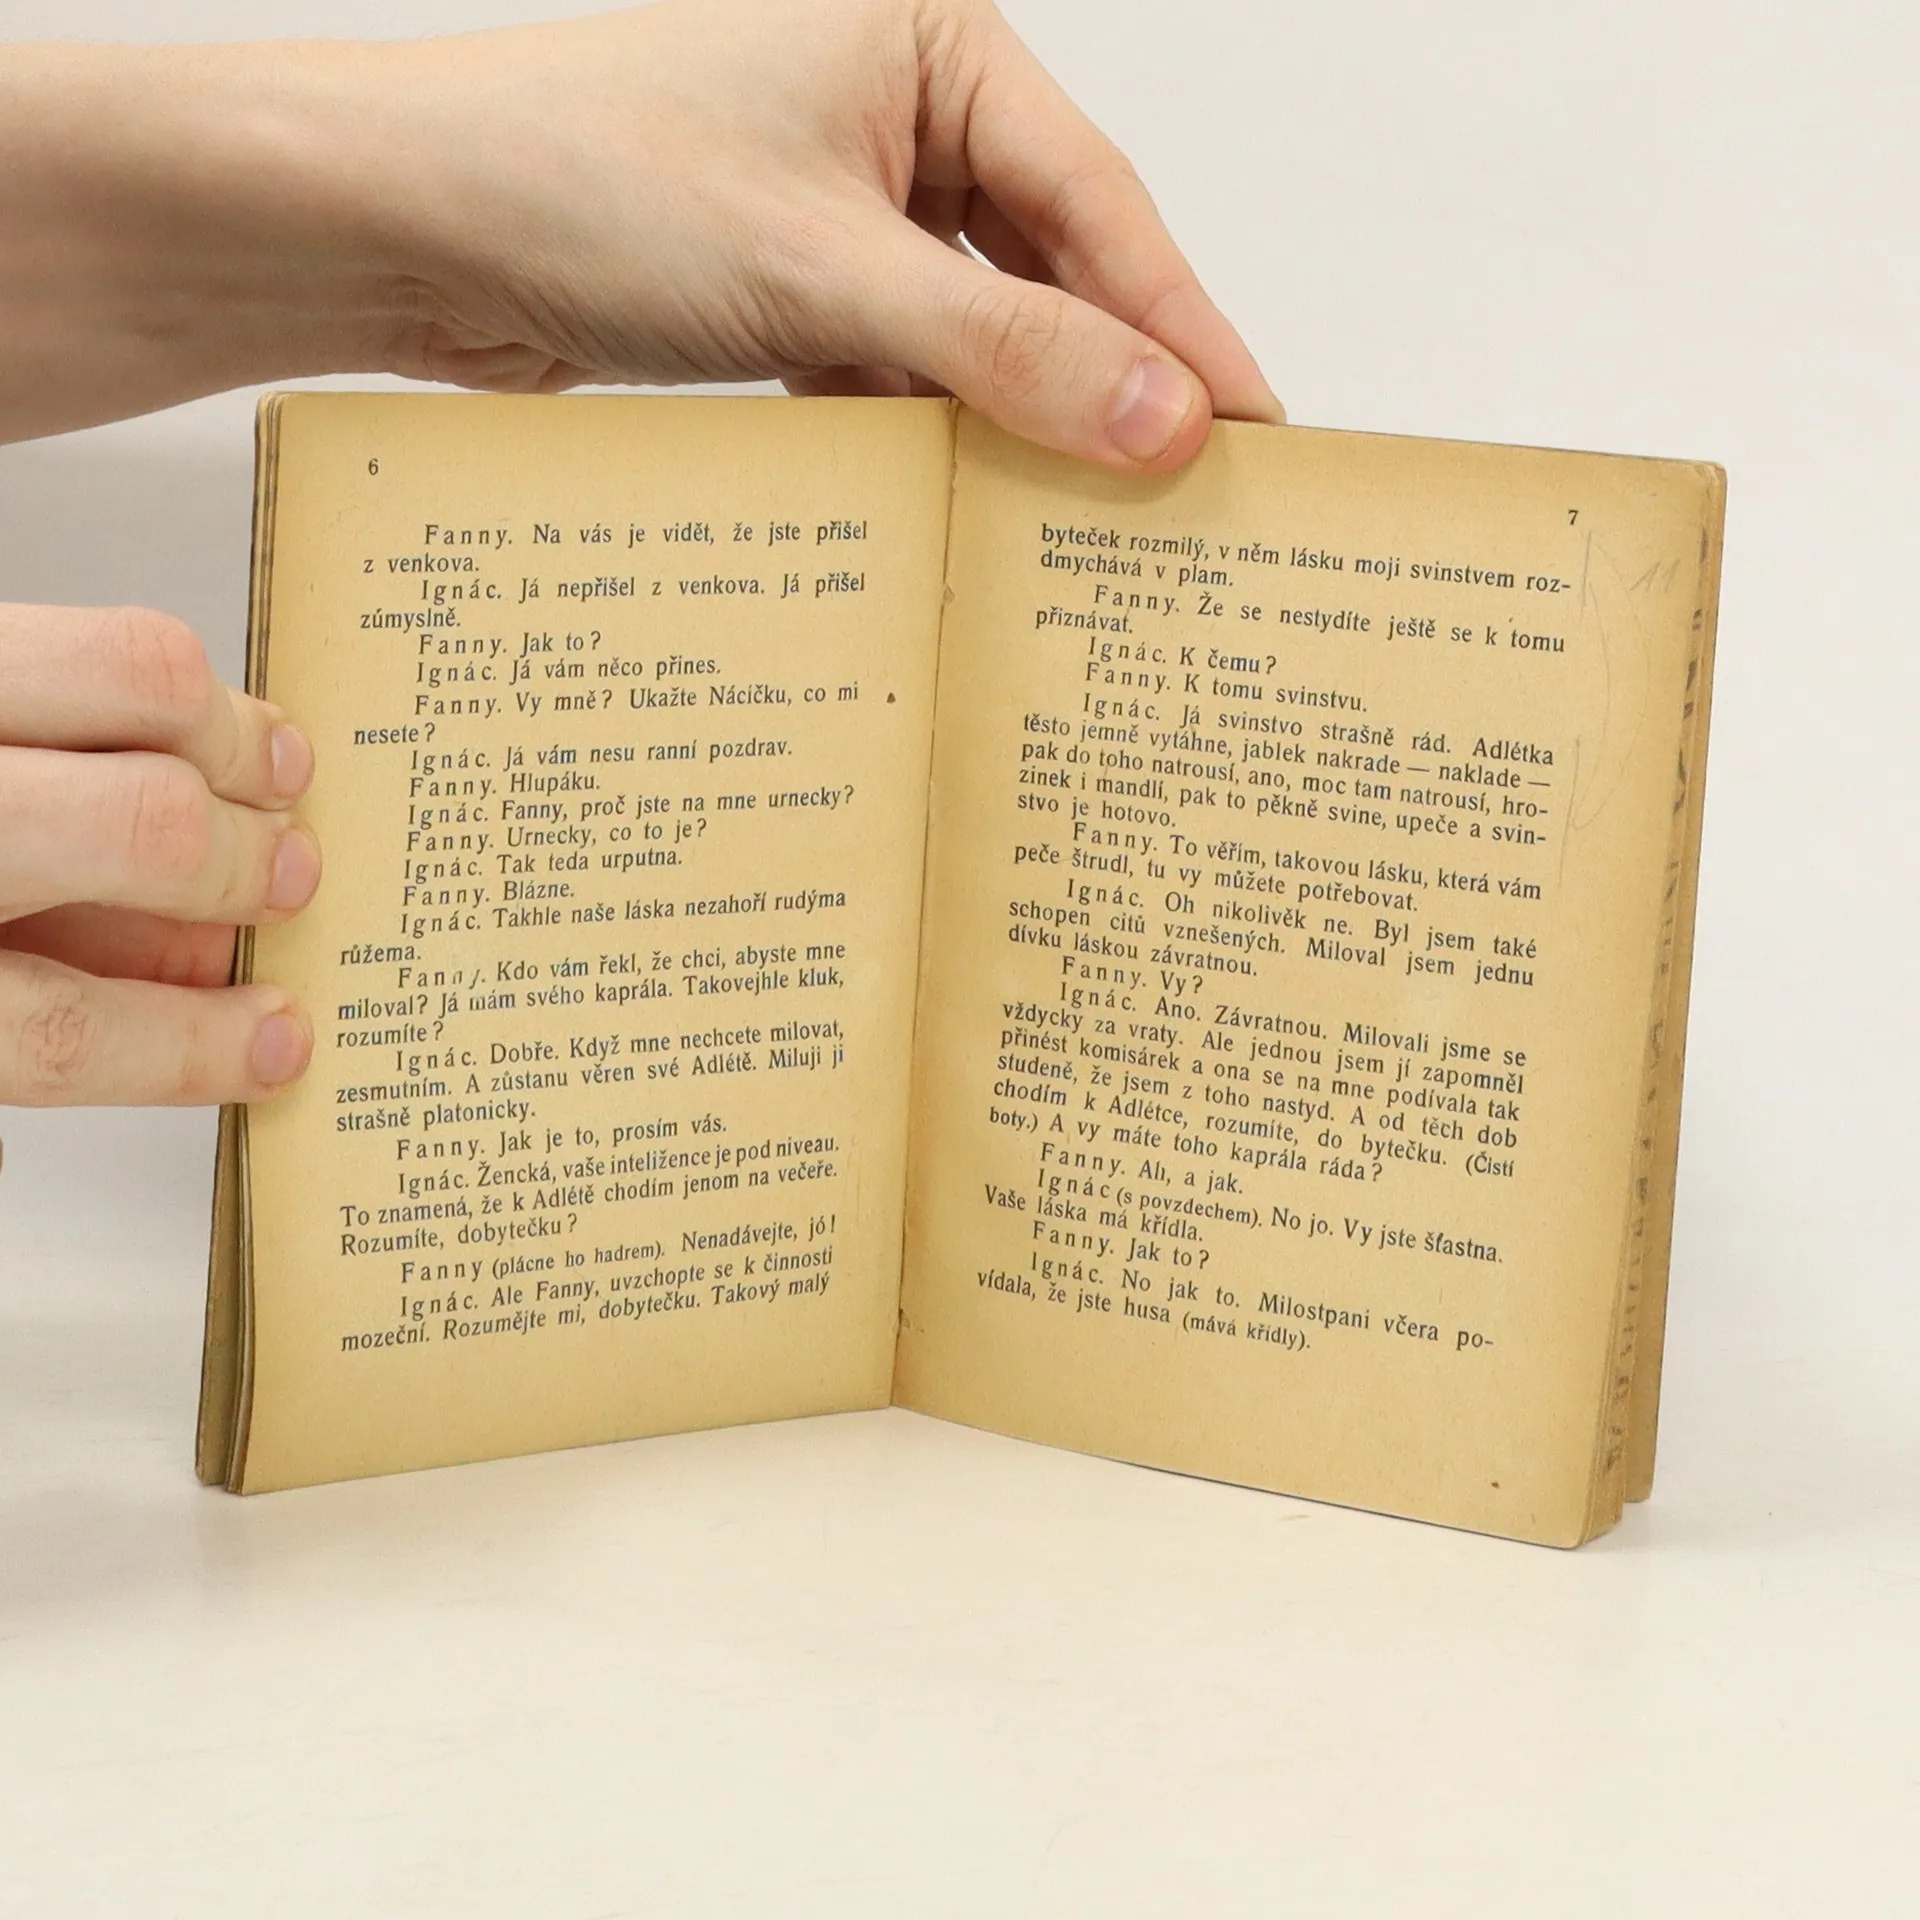 6
Fanny. Na vás je vidět, že jste přišel
z venkova.
Ignác. Já nepřišel z venkova. Já přišel
zúmyslně.
Fanny. Jak to?
Ignác. Já vám něco přines.
Fanny. Vy mně? Ukažte Nácíčku, co mi
nesete?
Ignác. Já vám nesu ranní pozdrav.
Fanny. Hlupáku.
Ignác. Fanny, proč jste na mne urnecky?
Fanny. Urnecky, co to je?
Ignác. Tak teda urputna.
Fanny. Blázne.
Ignác. Takhle naše láska nezahoří rudýma
růžema.
Fanny. Kdo vám řekl, že chci, abyste mne
miloval? Já mám svého kaprála. Takovejhle kluk,
rozumíte?
Ignác. Dobře. Když mne nechcete milovat,
zesmutním. A zůstanu věren své Adlétě. Miluji ji
strašně platonicky.
Fanny. Jak je to, prosím vás.
Ignác. Žencká, vaše inteližence je pod niveau.
To znamená, že k Adlétě chodím jenom na večeře.
Rozumíte, dobytečku?
Fanny (plácne ho hadrem). Nenadávejte, jó!
Ignác. Ale Fanny, uvzchopte se k činnosti
mozeční. Rozumějte mi, dobytečku. Takový malý
7
byteček rozmilý, v něm lásku moji svinstvem roz-
dmychává v plam.
Fanny. Že se nestydíte ještě se k tomu
přiznávat.
Ignác. K čemu?
Fanny. K tomu svinstvu.
Ignác. Já svinstvo strašně rád. Adlétka
těsto jemně vytáhne, jablek nakrade — naklade —
pak do toho natrousí, ano, moc tam natrousí, hro-
zinek i mandlí, pak to pěkně svine, upeče a svin-
stvo je hotovo.
Fanny. To věřím, takovou lásku, která vám
peče štrudl, tu vy můžete potřebovat.
Ignác. Oh nikolivěk ne. Byl jsem také
schopen citů vznešených. Miloval jsem jednu
dívku láskou závratnou.
Fanny. Vy?
Ignác. Ano. Závratnou. Milovali jsme se
vždycky za vraty. Ale jednou jsem jí zapomněl
přinést komisárek a ona se na mne podívala tak
studeně, že jsem z toho nastyd. A od těch dob
chodím k Adlétce, rozumíte, do bytečku. (Čistí
boty.) A vy máte toho kaprála ráda?
Fanny. Ah, a jak.
Ignác (s povzdechem). No jo. Vy jste šťastna.
Vaše láska má křídla.
Fanny. Jak to?
Ignác. No jak to. Milostpaní včera po-
vídala, že jste husa (mává křídly).
11